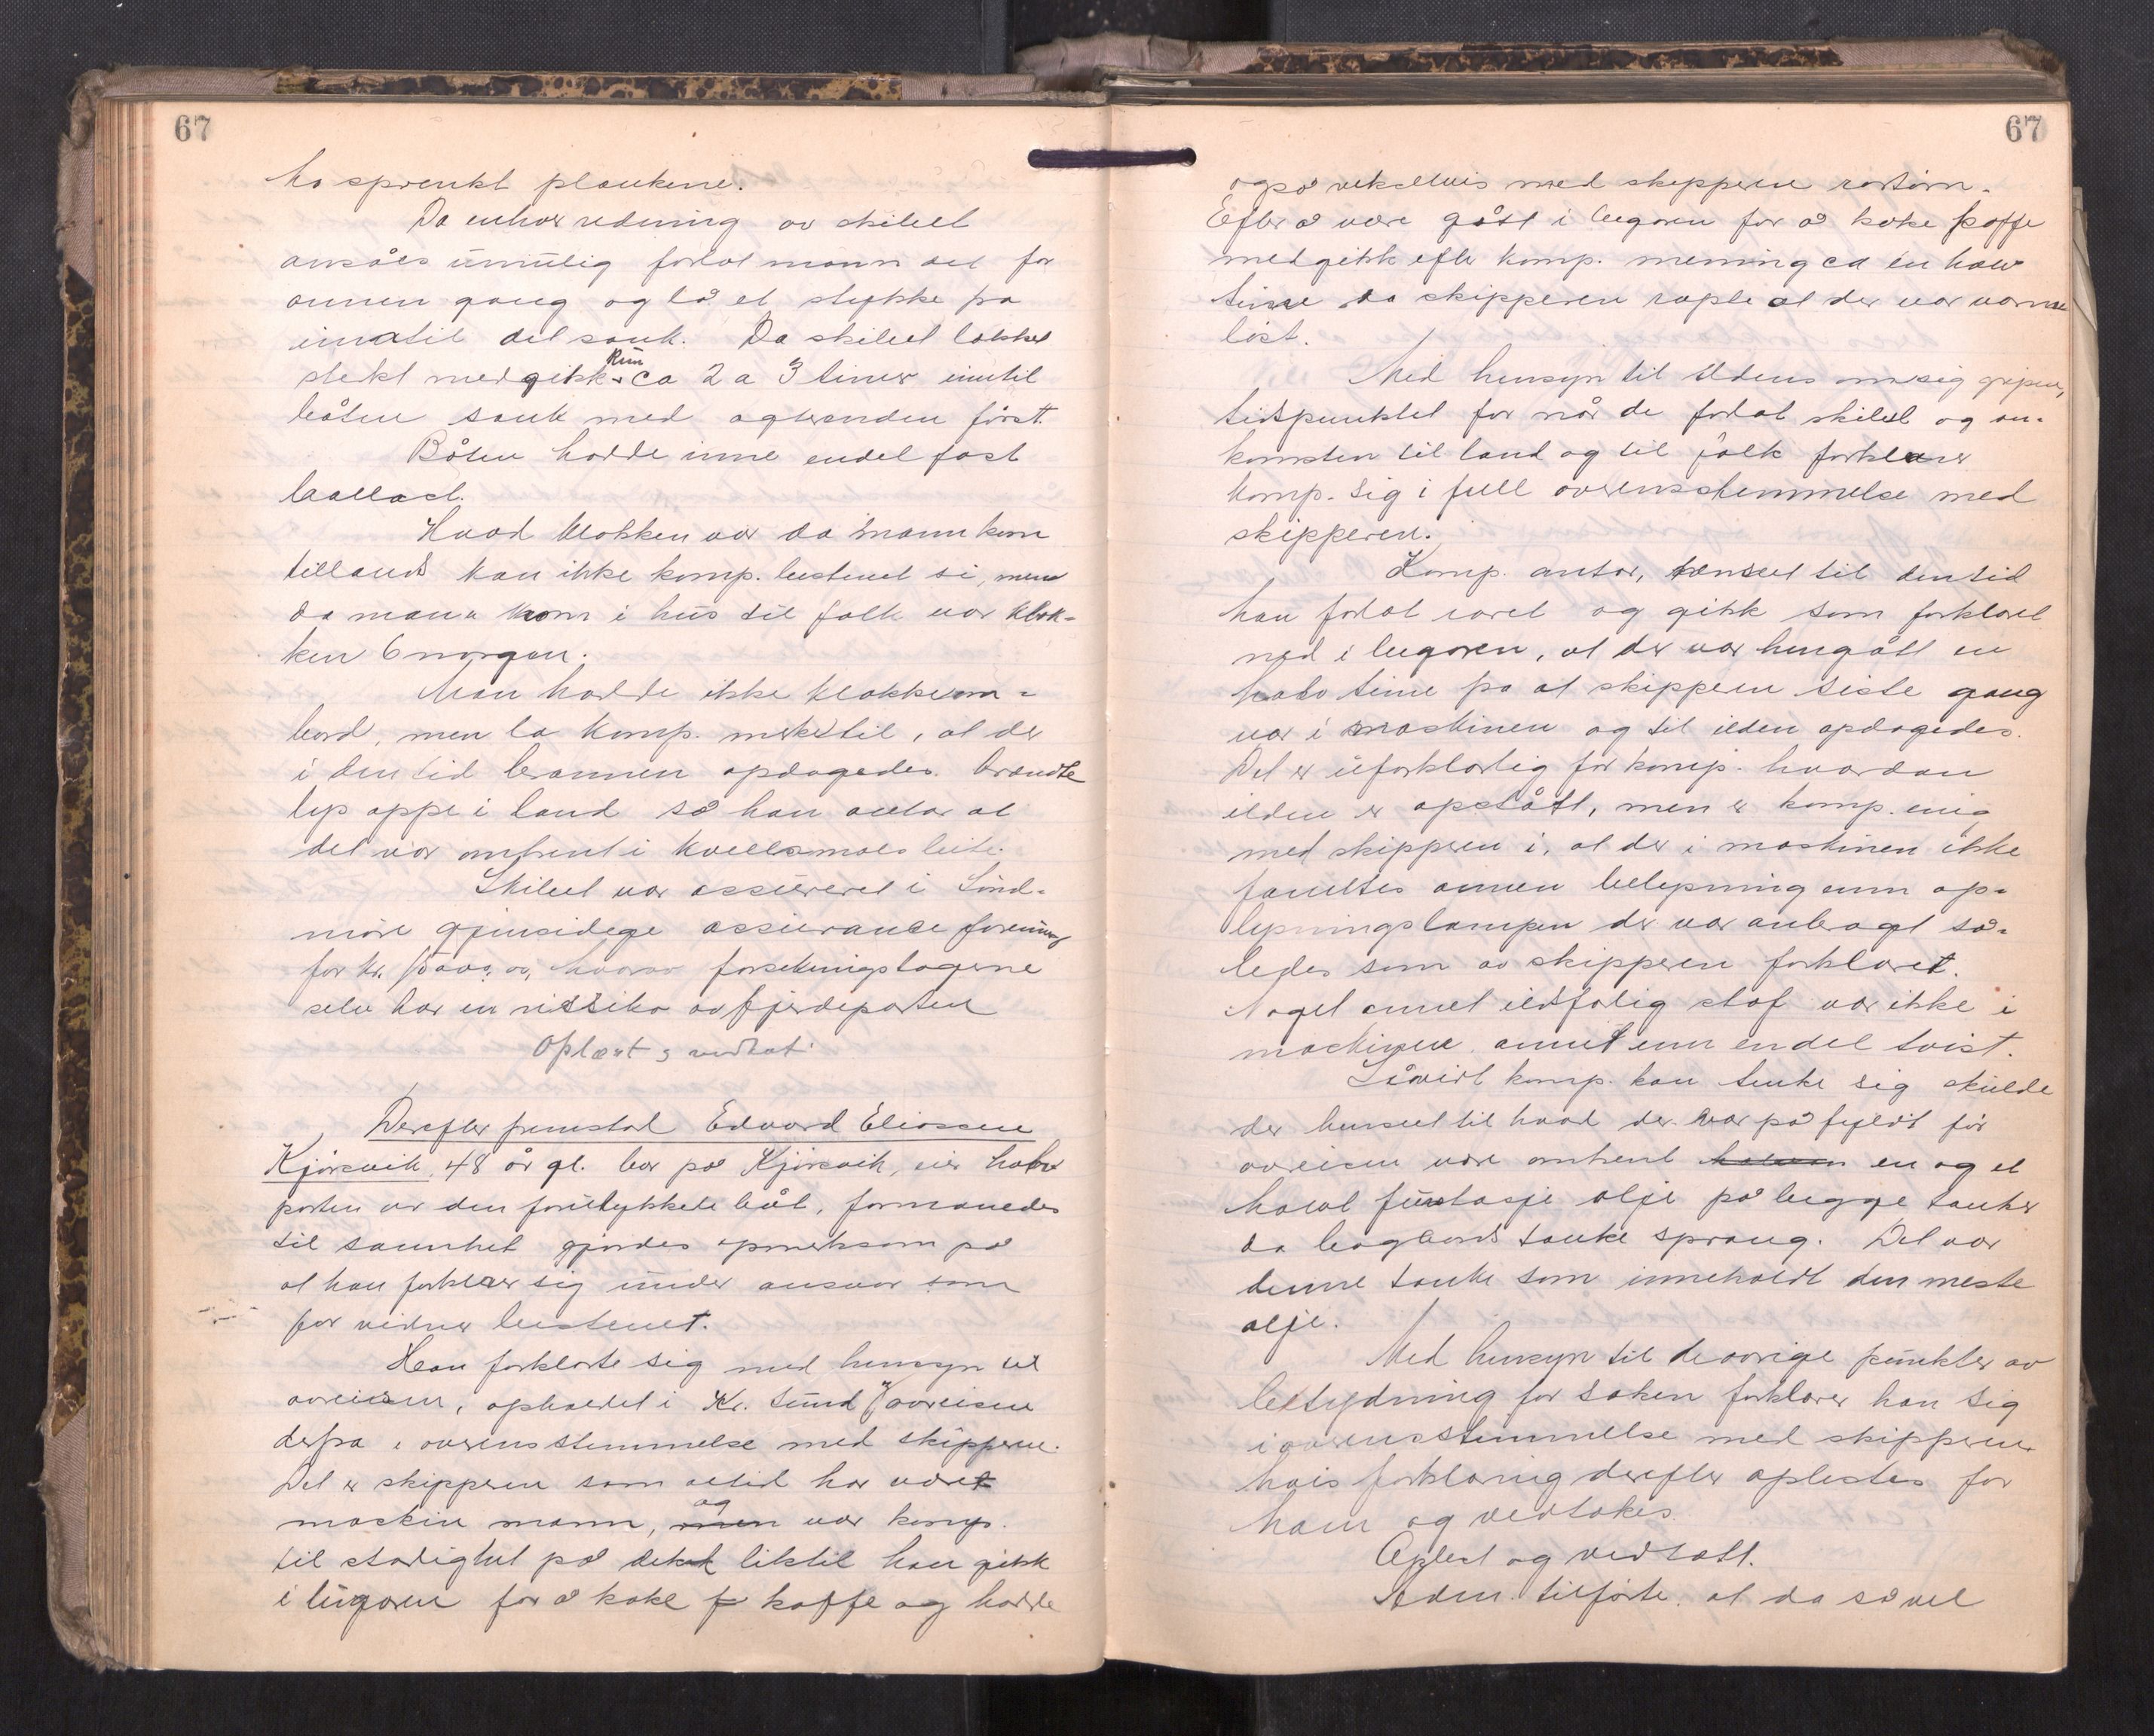 67
ha sprenkt plankene.
Da enhver redning av skibet
ansåes umulig forlot mann det for
annen gang og lå et stykke fra
inntil det sank. Da skibet lakket
sterkt medgikk kun ca 2 a 3 timer inntil
båten sank med agterenden først.
Båten hadde inne endel fast
baallast.
Hvad klokken var da mann kom
tillands kan ikke komp. bestemt si, men
da mann kom i hus til folk var klok-
ken 6 morgen.
Man hadde ikke klokke om-
bord, men la komp. merke til, at der
i den tid brannen opdagedes brændte
lys oppe i land så han antar at
det var omtrent i kveldsmats leite.
Skibet var assureret i Sund-
møre gjensidege assurance forening
for kr. 15000,00, hvorav forsekringstagerne
selv har en rissiko av fjerdeparten
Oplæst & vedtat.
Derefter fremstod Edvard Eliassen
Kjørsvik, 48 år gl. bor på Kjørsvik, eier halv
parten av den forulykkete båt, formanedes
til sannhet gjordes opmerksom på
at han forklarer sig under ansvar som
for vidner bestemt.
Han forklarte sig med hensyn til
avreisen, opholdet i Kr. Sund avreisen
derfra i overensstemmelse med skipperen.
Det er skipperen som altid har været
maskin mann, men og var komp.
til stadighet på dekk liktil han gikk
i lugaren for å koke k kaffe og hadde
67
også vekselvis med skipperen rortørn.
Efter å være gått i lugaren for å koke kaffe
medgikk efter komp. mening ca en halv
time da skipperen ropte at der var varme
løst.
Med hensyn til ildens omsig gripen,
tidspunktet for når de forlot skibet og an-
komsten til land og til folk forklarer
komp. sig i full overensstemmelse med
skipperen.
Komp. antar, hensett til den tid
han forlot roret og gikk som forklaret
ned i lugaren, at der var hengått en
halv time fra at skipperen siste gang
var i maskinen og til ilden opdagedes.
Det er uforklarlig for komp. hvordan
ilden er opstått, men er komp. enig
med skipperen i, at der i maskinen ikke
fandtes annen belysning enn op-
lysningslampen der var anbragt så-
ledes som av skipperen forklaret.
Noget annet ildsfarlig stof var ikke i
maskinen annet enn endel tvist.
Såvidt komp. kan tenke sig skulde
der hensett til hvad der var påfyldt før
avreisen være omtrent halvan en og et
halvt fustasje olje på begge tanker
da bagbords tanke sprang. Det var
denne tanke som inneholdt den meste
olje.
Med hensyn til de øvrige punkter av
betydning for saken forklarer han sig
i overensstemmelse med skipperen
hvis forklaring derefter oplestes for
ham og vedtokes.
Oplest og vedtatt.
Adm. tilførte, at da såvel